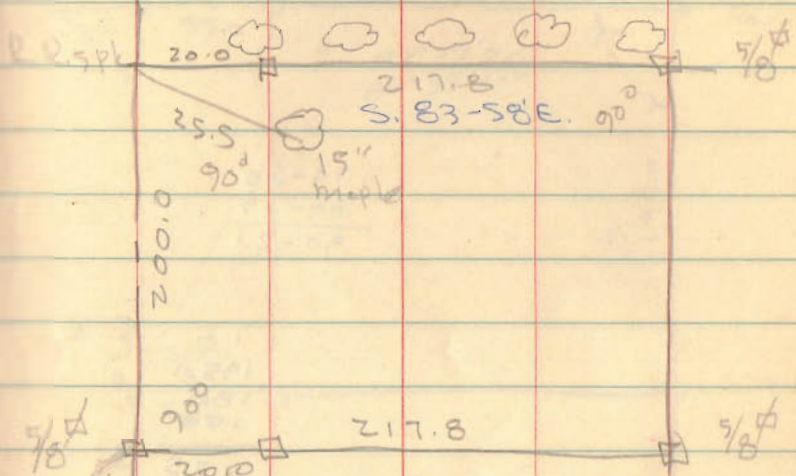 R.R. spk 20.0 5/8
217.8
S. 83-58'E. 90°
25.5
90° 15"
maple
200.0
90°
5/8 217.8 5/8
20.0